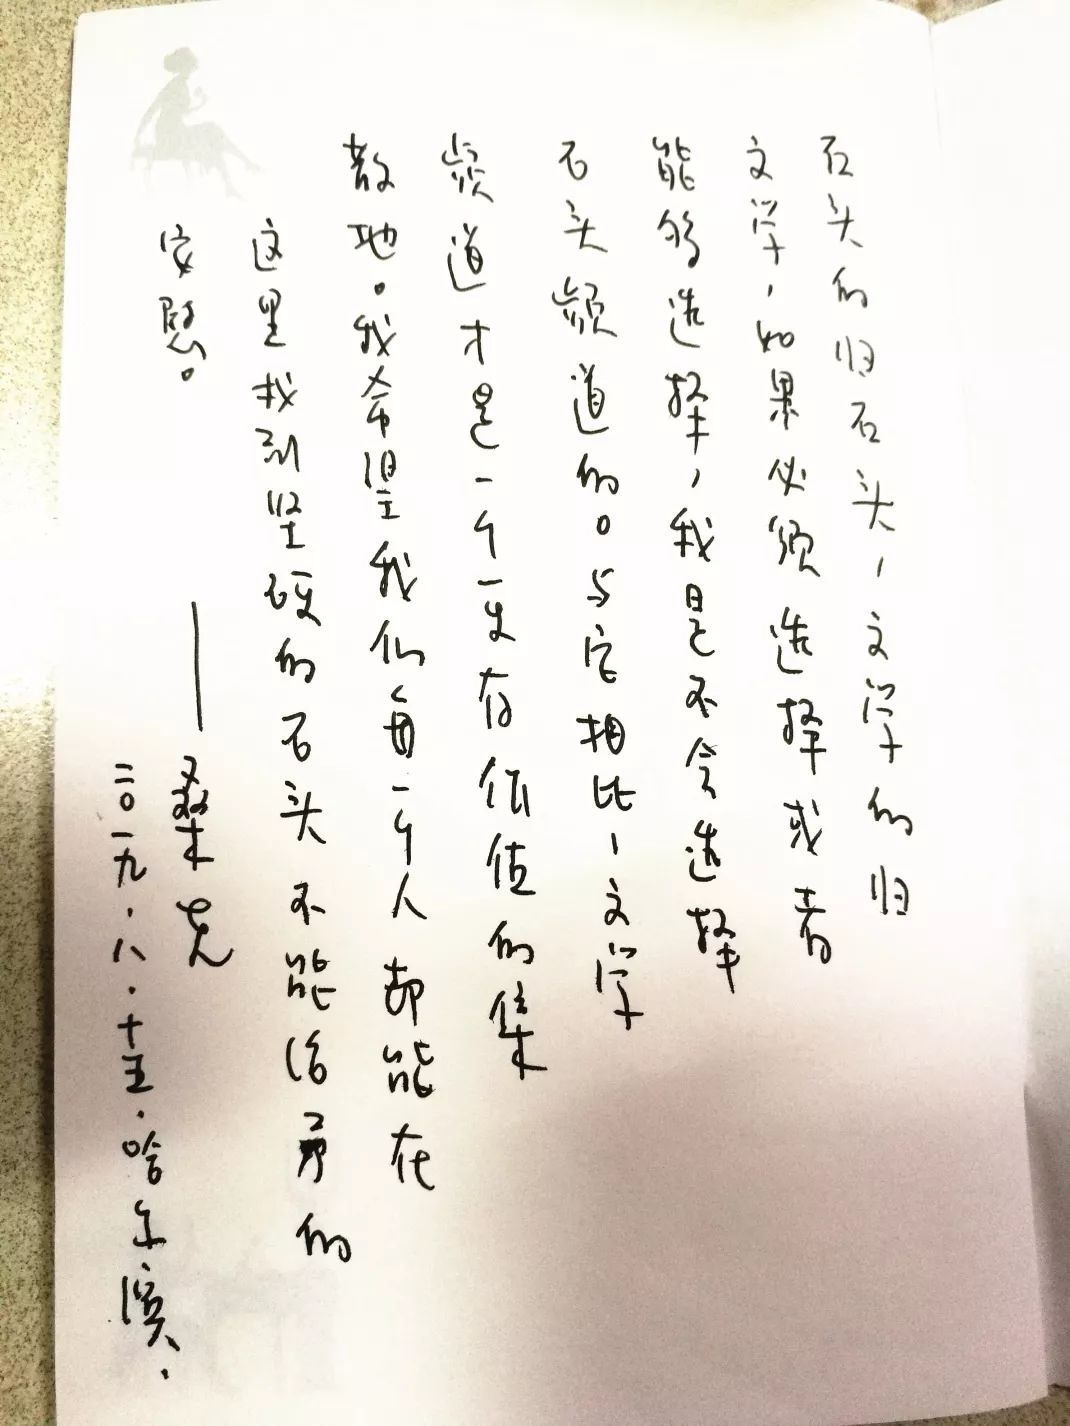 石头的归石头，文学的归
文学，如果必须选择或者
能够选择，我是不会选择
石头频道的。与它相比，文学
频道才是一个一更有价值的集
散地。我希望我们每一个人都能在
这里找到坚硬的石头不能给予的
安慰。
——桑克
二〇一九.八.十五.哈尔滨.